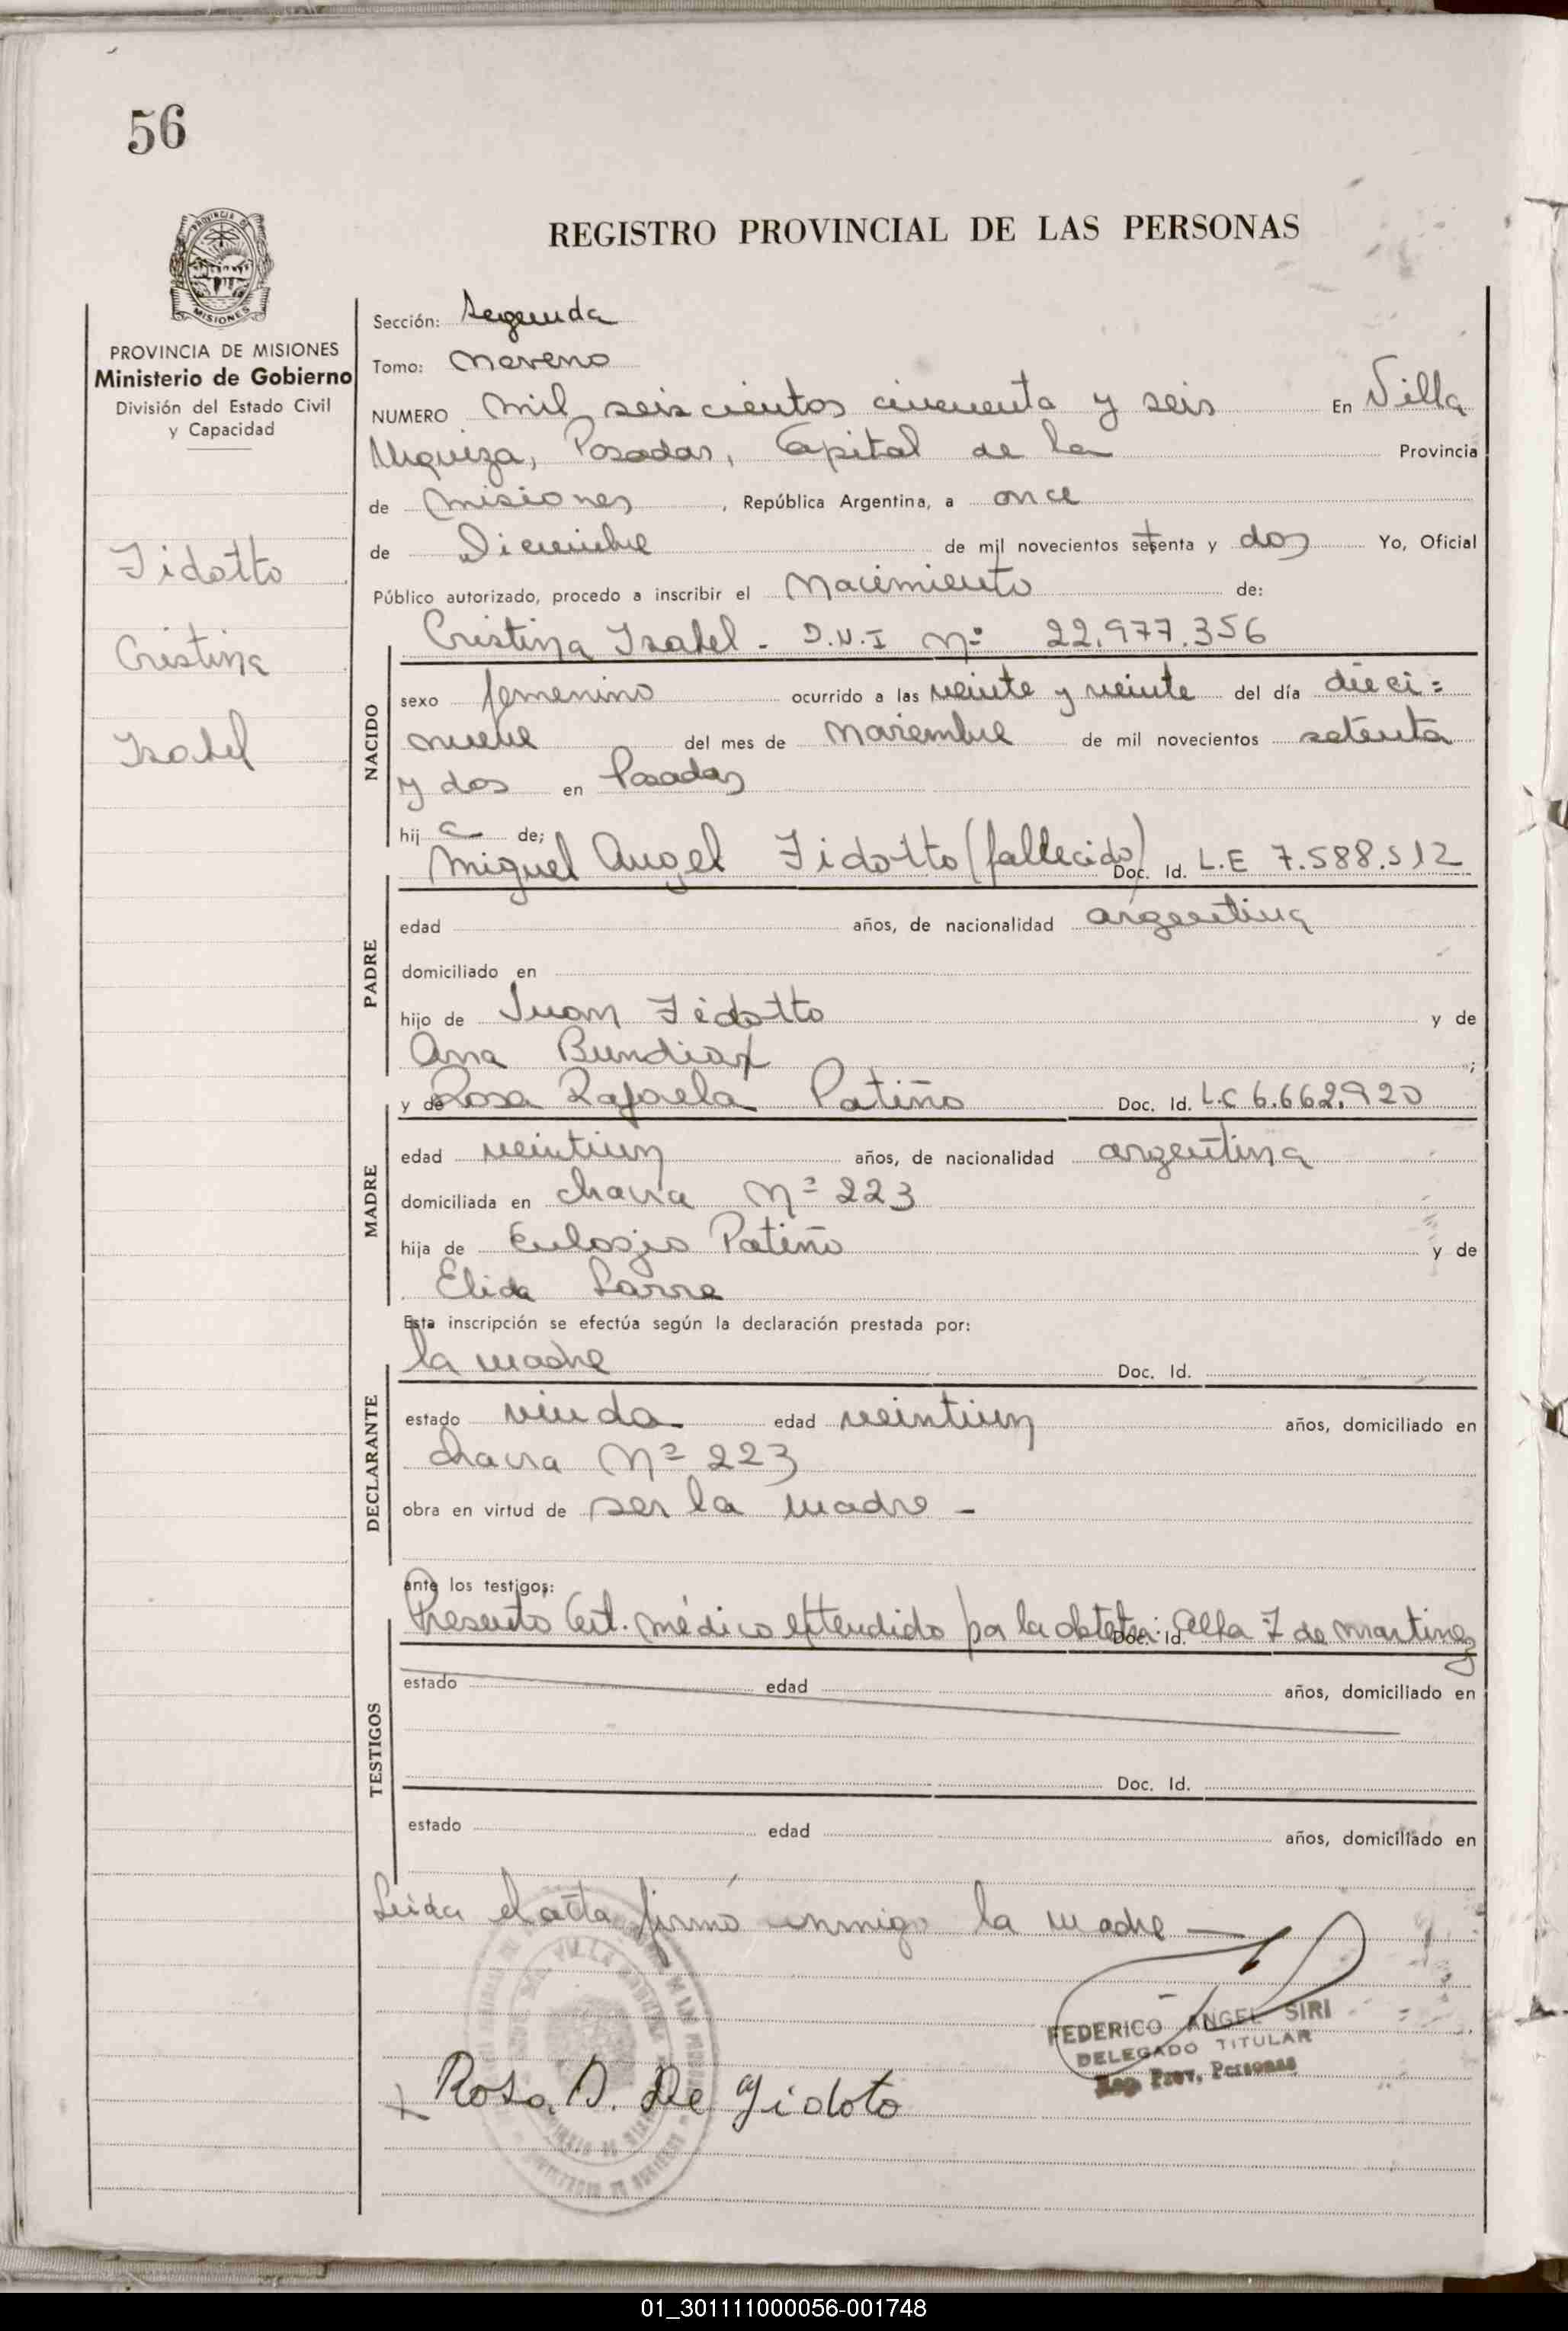 56
REGISTRO PROVINCIAL DE LAS PERSONAS
PROVINCIA DE
MISIONES
PROVINCIA DE MISIONES
Ministerio de Gobierno
División del Estado Civil
y Capacidad
Fidotto
Cristina
Isabel
Sección: Segunda
Tomo: Noveno
NUMERO Mil seiscientos cincuenta y seis En Villa
Urquiza, Posadas, Capital de la Provincia
de Misiones, República Argentina, a once
de Diciembre de mil novecientos setenta y dos Yo, Oficial
Público autorizado, procedo a inscribir el Nacimiento de:
Cristina Isabel - D.N.I Nº 22.977.356
NACIDO
sexo femenino ocurrido a las veinte y veinte del día dieci=
nueve del mes de Noviembre de mil novecientos setenta
y dos en Posadas
hij a de;
Miguel Angel Fidotto (fallecido) Doc. Id. L.E 7.588.512
PADRE
edad años, de nacionalidad argentina
domiciliado en
hijo de Juan Fidotto y de
Ana ;
y de Rosa Rafaela Patiño Doc. Id. L.C 6.662.920
MADRE
edad veintiun años, de nacionalidad argentina
domiciliada en chacra Nº 223
hija de Eulogio Patiño y de
Elida
Esta inscripción se efectúa según la declaración prestada por:
la madre Doc. Id.
DECLARANTE
estado viuda edad veintiun años, domiciliado en
chacra Nº 223
obra en virtud de ser la madre -
ante los testigos:
Presentó Cert. médico extendido por la obstetra: F de Martinez Doc. Id.
TESTIGOS
estado edad años, domiciliado en
Doc. Id.
estado edad años, domiciliado en
Leida el acta firmó conmigo la madre
FEDERICO ANGEL SIRI
DELEGADO TITULAR
Reg. Prov. Personas
VILLA
Rosa. D. De Fidoto
01_301111000056-001748